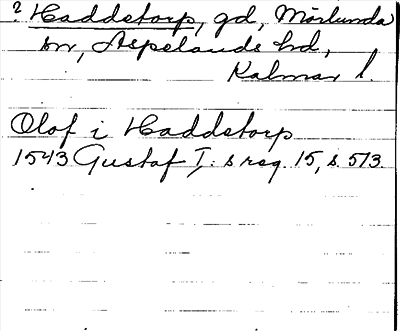 ? Haddetorp, gd, Mörlunda
sn, Aspelands hd,
Kalmar l.
Olof i Haddetorp
1543 Gustaf I: s reg. 15, s. 573